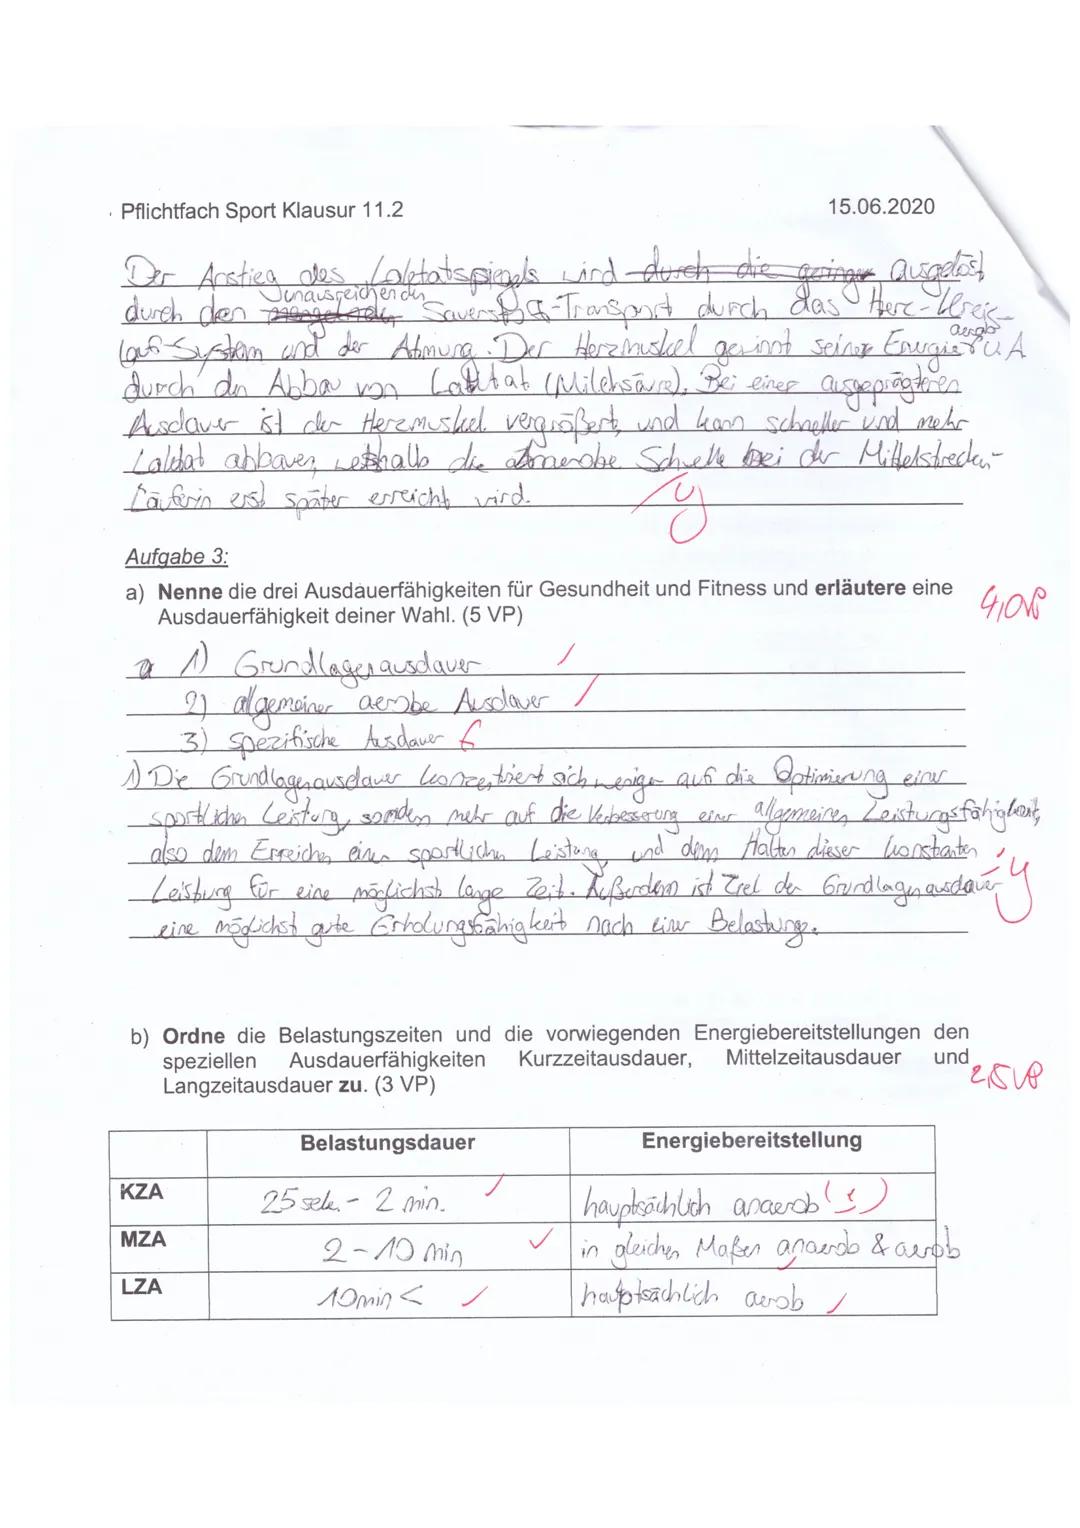 Pflichtfach Sport Klausur 11.2
15.06.2020
Der Anstieg des Laktatspiegels wird durch die geringe ausgelöst
durch den unausreichenden Sauerstoff-Transport durch das Herz-Kreis-
lauf-System und der Atmung. Der Herzmuskel gewinnt seine Energie aerob u.A
durch den Abbau von Laktat (Milchsäure). Bei einer ausgeprägteren
Ausdauer ist der Herzmuskel vergrößert, und kann schneller und mehr
Laktat abbauen, weshalb die anaerobe Schwelle bei der Mittelstrecken-
läuferin erst später erreicht wird.
Aufgabe 3:
a) Nenne die drei Ausdauerfähigkeiten für Gesundheit und Fitness und erläutere eine
Ausdauerfähigkeit deiner Wahl. (5 VP)
4,0VP
1) Grundlagenausdauer
2) allgemeiner aerobe Ausdauer
3) spezifische Ausdauer f
1) Die Grundlagenausdauer konzentriert sich weniger auf die Optimierung einer
sportlichen Leistung, sondern mehr auf die Verbesserung einer allgemeinen Leistungsfähigkeit,
also dem Erreichen einer sportlichen Leistung und dem Halten dieser konstanten
Leistung für eine möglichst lange Zeit. Außerdem ist Ziel der Grundlagenausdauer
eine möglichst gute Erholungsfähigkeit nach einer Belastung.
b) Ordne die Belastungszeiten und die vorwiegenden Energiebereitstellungen den
speziellen Ausdauerfähigkeiten Kurzzeitausdauer, Mittelzeitausdauer und
Langzeitausdauer zu. (3 VP)
2,5VP
Belastungsdauer Energiebereitstellung
KZA 25 sek. - 2 min. hauptsächlich anaerob
MZA 2-10 min in gleichen Maßen anaerob & aerob
LZA 10min < hauptsächlich aerob